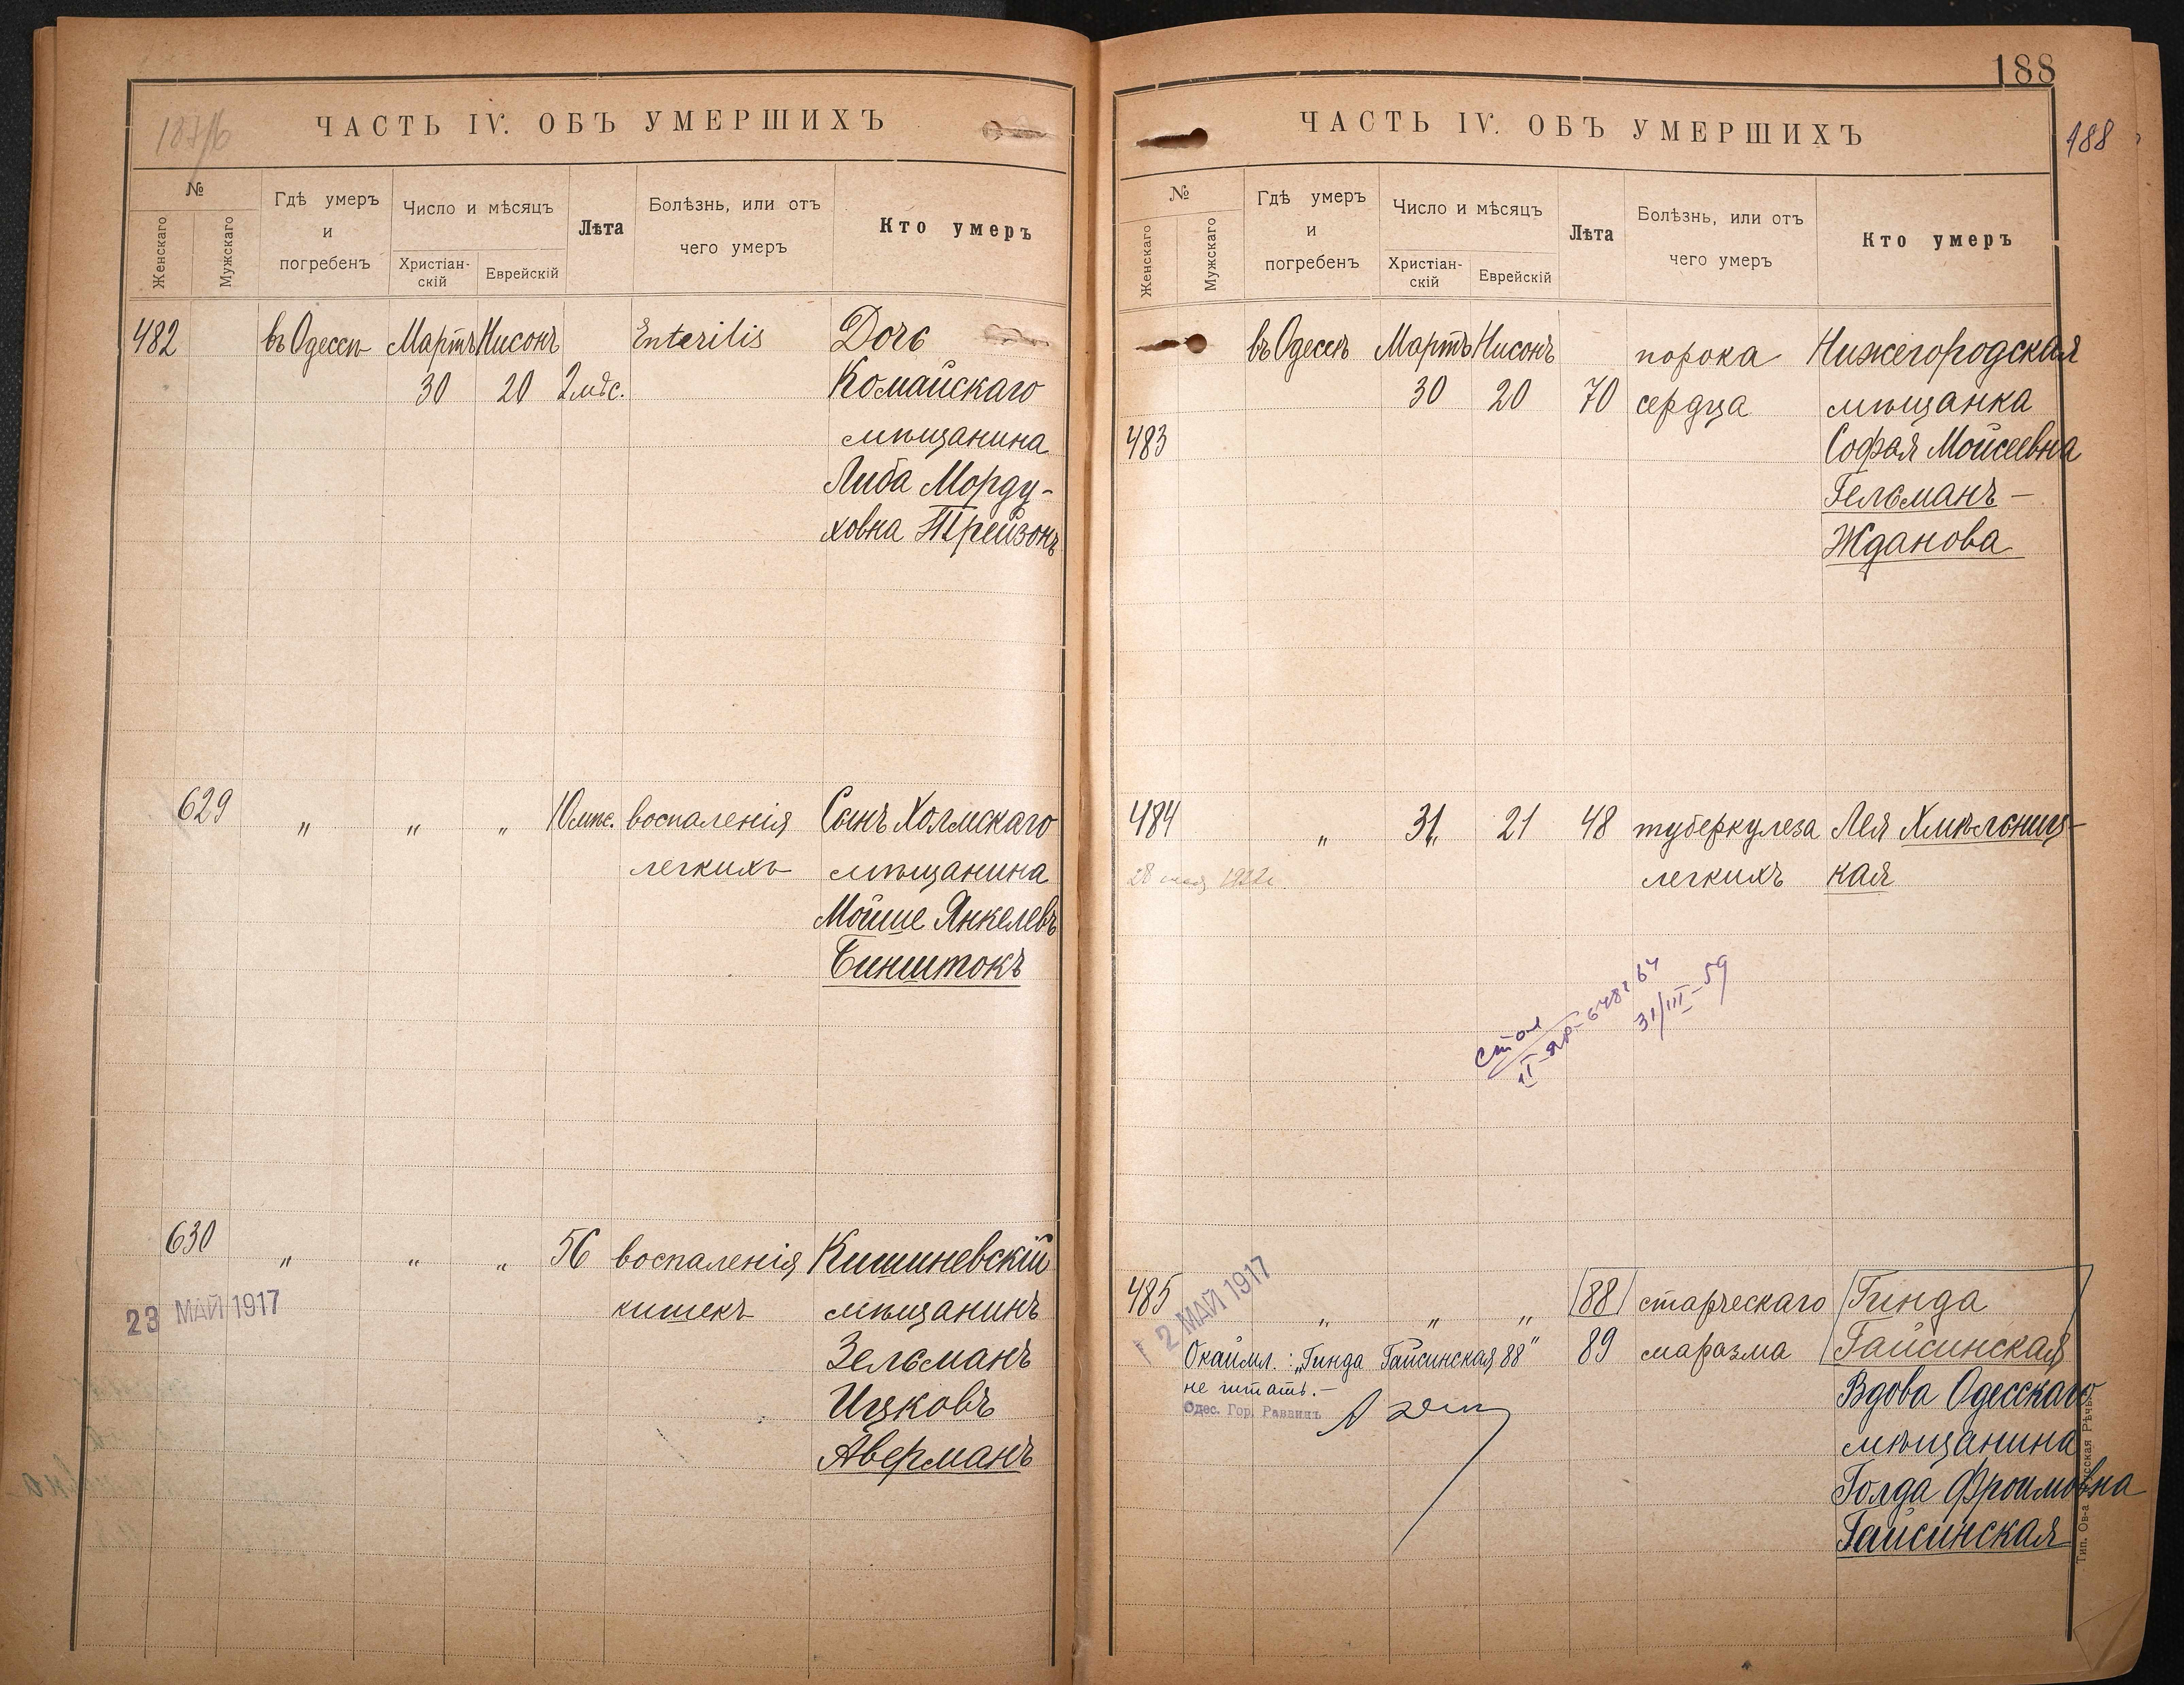 ЧАСТЬ IV. ОБЪ УМЕРШИХЪ
№
Женскаго
Мужскаго
Гдѣ умеръ
и
погребенъ
Число и мѣсяцъ
Христіан-
скій
Еврейскій
Лѣта
Болѣзнь, или отъ
чего умеръ
Кто умеръ
482 въ Одессѣ Мартъ Нисонъ Enteritis Дочь
30 20 2 мѣс. Комайскаго
мѣщанина
Либа Морду-
ховна Трейзонъ
629 " " " 10 мѣс. воспаленія Сынъ Холмскаго
легкихъ мѣщанина
Мойше Янкелевъ
Бинштокъ
630 " " " 56 воспаленія Кишиневскій
23 МАЙ 1917 кишекъ мѣщанинъ
Зельманъ
Ицковъ
Аверманъ
188
188
ЧАСТЬ IV. ОБЪ УМЕРШИХЪ
№
Женскаго
Мужскаго
Гдѣ умеръ
и
погребенъ
Число и мѣсяцъ
Христіан-
скій
Еврейскій
Лѣта
Болѣзнь, или отъ
чего умеръ
Кто умеръ
въ Одессѣ Мартъ Нисонъ порока Нижегородская
30 20 70 сердца мѣщанка
483 Софья Мойсеевна
Гельманъ –
Жданова
484 " 31 21 48 туберкулеза Лея Хмѣльниц-
легкихъ кая
31/III–59
485 " " " 88 старческаго Гинда
2 МАЙ 1917
Окаймл.: „Гинда Гайсинская 88" 89 маразма Гайсинская
не читать.–
Одес. Гор. Раввинъ
Вдова Одесскаго
мѣщанина
Голда Фроимовна
Гайсинская
Тип. Ов-а Русская Рѣчь